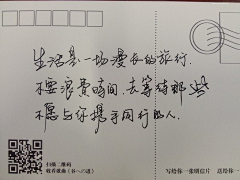 生活是一场漫长的旅行.
不要浪费时间,去等待那些
不愿与你携手同行的人.
扫描二维码
写给你一张明信片
送给你一